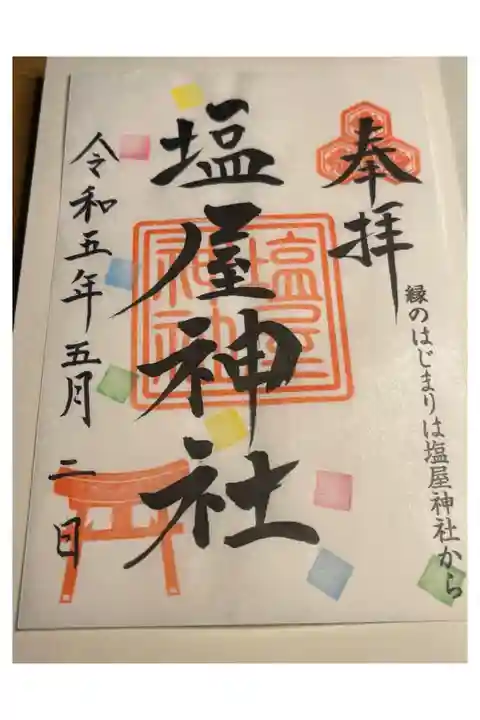 奉拝
縁のはじまりは塩屋神社から
塩屋神社
塩屋
神社
令和五年五月二日